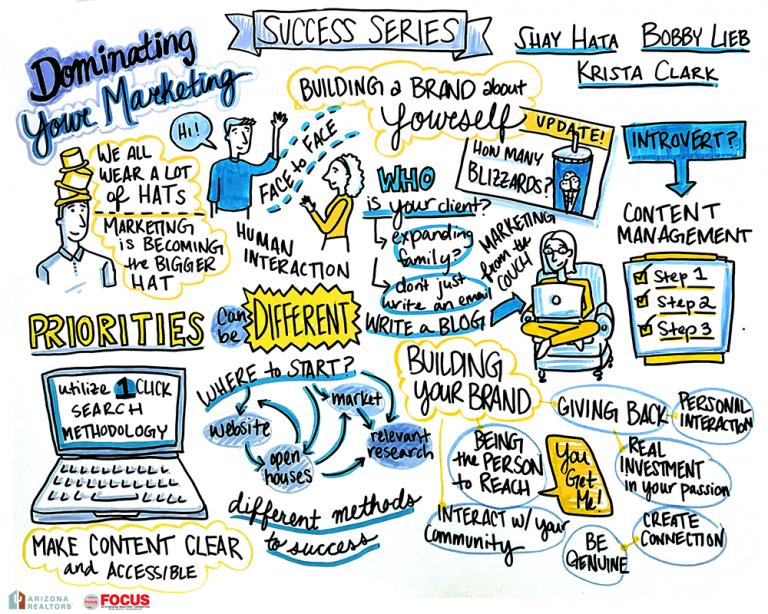 SUCCESS SERIES
SHAY HATA
BOBBY LIEB
KRISTA CLARK
Dominating
Your Marketing
BUILDING a BRAND about
Yourself
Hi!
WE ALL
WEAR A LOT
of HATS
MARKETING
is BECOMING
the BIGGER
HAT
FACE to FACE
HUMAN
INTERACTION
WHO
is your client?
expanding
family?
don't just
write an email
WRITE a BLOG
UPDATE!
HOW MANY
BLIZZARDS?
MARKETING
from the
COUCH
INTROVERT?
CONTENT
MANAGEMENT
Step 1
Step 2
Step 3
PRIORITIES
can
be
DIFFERENT
utilize 1 CLICK
SEARCH
METHODOLOGY
MAKE CONTENT CLEAR
and ACCESSIBLE
WHERE to START?
website
open
houses
market
relevant
research
different methods
to success
BUILDING
YOUR BRAND
GIVING BACK
PERSONAL
INTERACTION
REAL
INVESTMENT
in your passion
CREATE
CONNECTION
BE
GENUINE
BEING
the PERSON
to REACH
You
Get
Me!
INTERACT w/ your
Community
ARIZONA
REALTORS
FOCUS